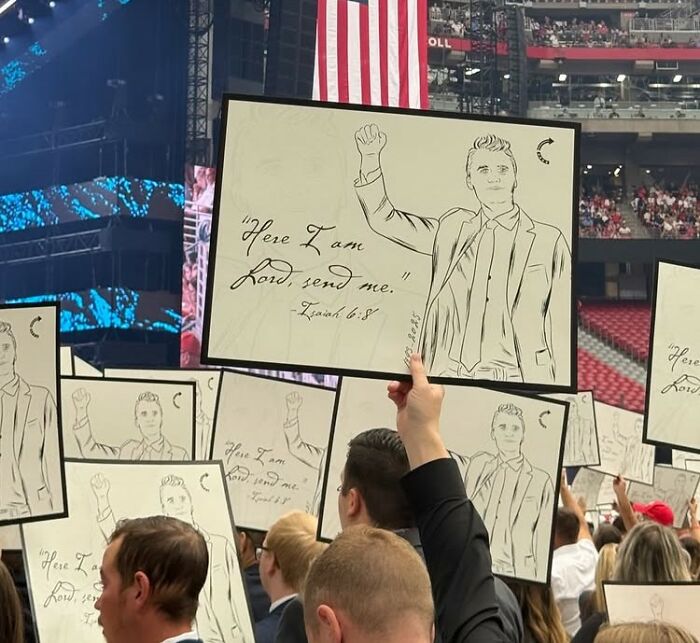 OLL
"Here I am
Lord, send me."
-Isaiah 6:8
2025
"Here
Lord
"Here I am
Lord, send me."
-Isaiah 6:8
"Here I a
Lord, sen